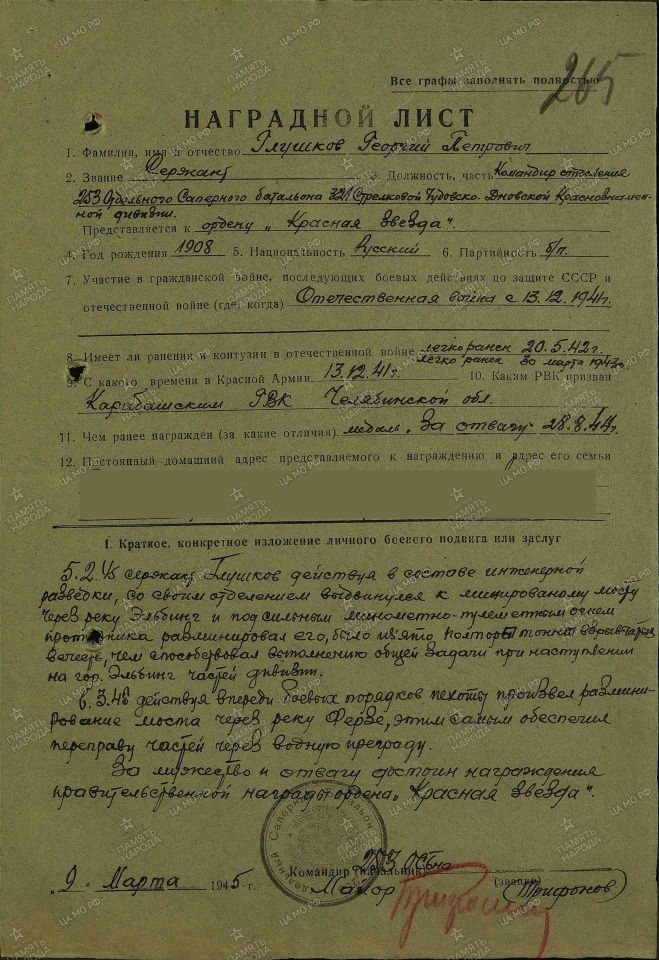 265
Все графы заполнять полностью
НАГРАДНОЙ ЛИСТ
1. Фамилия, имя и отчество Глушков Георгий Петрович
2. Звание Сержант 3. Должность, часть Командир отделения
253 Отдельного Саперного батальона 321 Стрелковой Чудовско-Дновской Краснознамен-
ной дивизии.
Представляется к ордену „Красная звезда".
4. Год рождения 1908 5. Национальность Русский 6. Партийность б/п.
7. Участие в гражданской войне, последующих боевых действиях по защите СССР и
отечественной войне (где, когда) Отечественная война с 13.12.1941г.
8. Имеет ли ранения и контузии в отечественной войне легко ранен 20.5.42г.
легко ранен 30 марта 1943г
9. С какого времени в Красной Армии 13.12.41г. 10. Каким РВК призван
Карабашским РВК Челябинской обл.
11. Чем ранее награжден (за какие отличия) медаль „За отвагу" 28.8.44г.
12. Постоянный домашний адрес представляемого к награждению и адрес его семьи
I. Краткое, конкретное изложение личного боевого подвига или заслуг
5.2.45 сержант Глушков действуя в составе инженерной
разведки, со своим отделением выдвинулся к минированому мосту
через реку Эльбинг и под сильным минометно-пулеметным огнем
противника разминировал его, было из'ято полторы тонны взрывчатых
веществ, чем способствовал выполнению общей задачи при наступлении
на гор. Эльбинг частей дивизии.
6.3.45 действуя впереди боевых порядков пехоты произвел размини-
рование моста через реку Ферзе, этим самым обеспечил
переправу частей через водную преграду.
За мужество и отвагу достоин награждения
правительственной награды ордена „Красная звезда".
253 ОСБ-на
Командир (начальник)
Майор (звание) (Трифонов)
„9" Марта 1945 г.